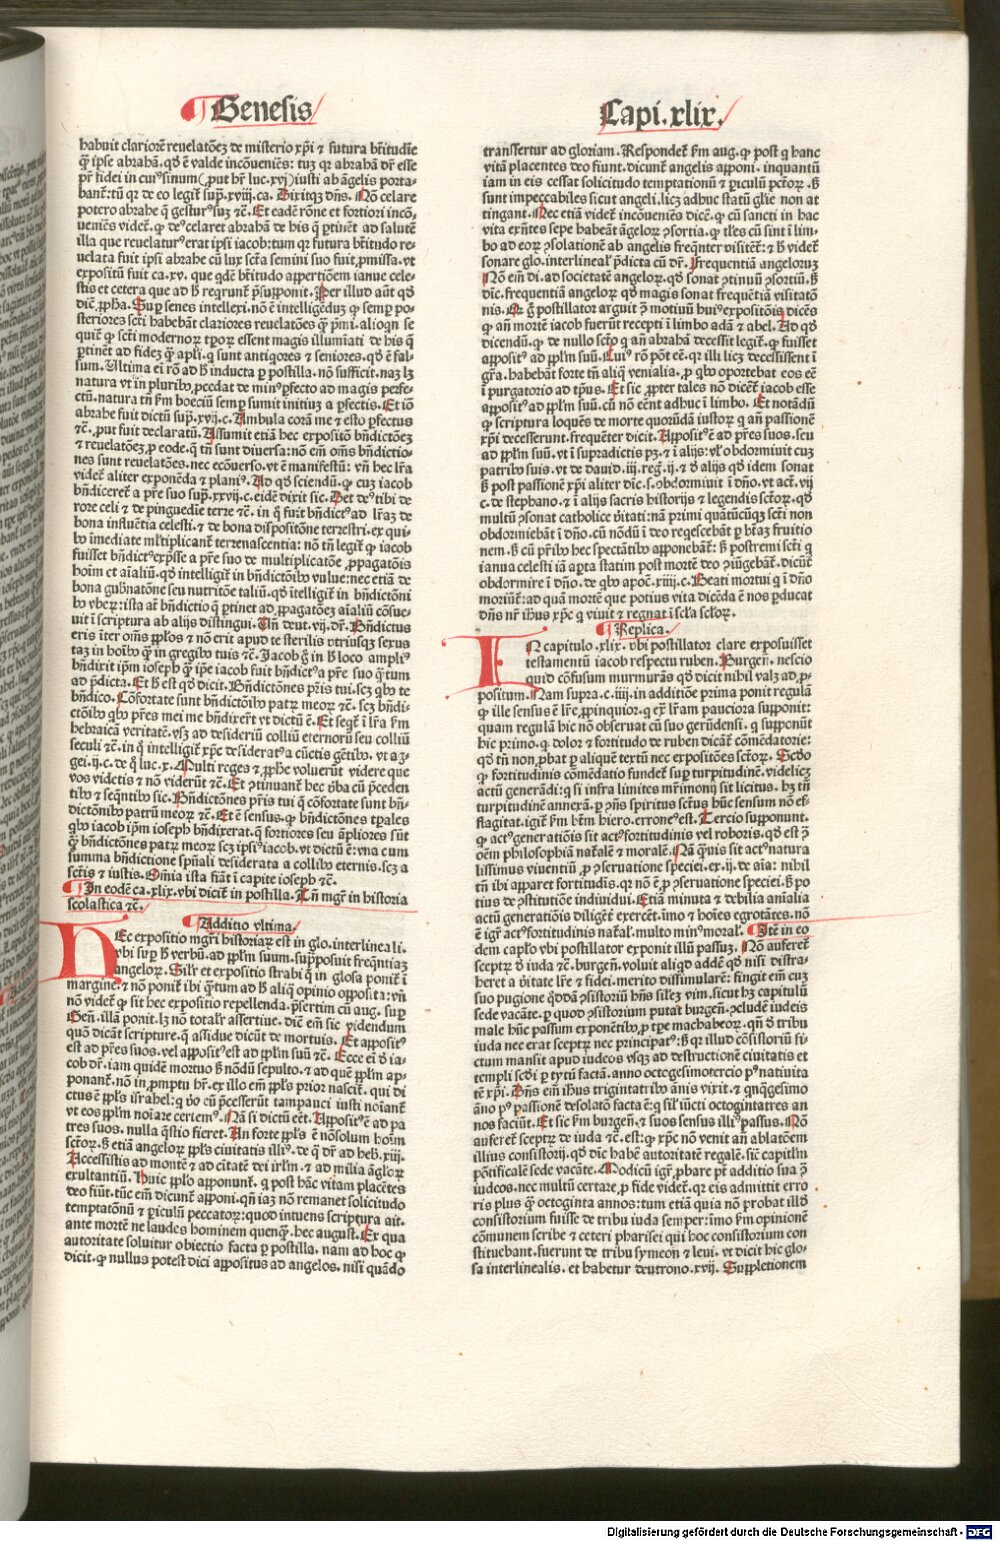 Genesis
habuit clariorē reuelatōeʒ de misterio xp̄i ⁊ futura btitudīe
ꝙ ip̄e abrahā. qd̓ ē valde incōueniēs: tuʒ qꝛ abrahā dr̄ esse
pr̄ fidei in cuiꝰ sinum (ꝓut hr̄ luc. xvj) iusti ab āgelis porta-
bant̄: tū qꝛ de eo legit̄ sup̲. xviij. ca. Dixitqꝫ dn̄s. Nō celare
potero abrahe q̄ gesturꝰ suʒ ⁊c̄. Et eadē rōne et fortiori incō-
ueniēs videt̄. ꝙ deꝰ celaret abrahā de his q̄ ptinēt ad salutē
illa que reuelaturꝰ erat ipsi iacob: tum qꝛ futura btitudo re-
uelata fuit ipsi abrahe cū lux sctā semini suo fuit ꝓmissa. vt
expositū fuit ca. xv. que qdē btitudo appertiōem ianue cele-
stis et cetera que ad h̄ reqrunt̄ p̄supponit. Per illud aūt qd̓
diē. ꝓph̄a. Sup̲ senes intellexi. nō ē intelligēduʒ ꝙ semp̲ po-
steriores scti habebāt clariores reuelatōes ꝙ p̄mi. alioqn se
quiē ꝙ scti modernoꝝ tpoꝝ essent magis illumīati de his q̄
ptinēt ad fideʒ ꝙ apl̄i. q̄ sunt antiqores ⁊ seniores. qd̓ ē fal-
sum. Ultima ei rō ad h̄ inducta p postilla. nō sufficit. naʒ lʒ
natura vt in pluribꝰ ꝓcedat de minꝰ pfecto ad magis perfe-
ctū. natura tn̄ fm boeciū semp̲ sumit initiuʒ a pfectis. Et iō
abrahe fuit dictū sup̲. xvij. c. Ambula corā me ⁊ esto pfectus
⁊c̄. ꝓut fuit declaratū. Assumit etiā hec expositō bn̄dictōeʒ
⁊ reuelatōeʒ ꝓ eode. q̄ tn̄ sunt diuersa: nō em̄ om̄s bn̄dictio-
nes sunt reuelatōes. nec ecōuerso. vt ē manifestū: vn̄ hec lr̄a
videt̄ aliter exponēda ⁊ planiꝰ. Ad qd̓ sciendū. ꝙ cuʒ iacob
bn̄diceret̄ a pr̄e suo sup̲. xxvij. c. eidē dixit sic. Det deꝰ tibi de
rore celi ⁊ de pinguedie terre ⁊c̄. in q̄ fuit bn̄dictꝰ ad lr̄aʒ de
bona influētia celesti. ⁊ de bona dispositōne terrestri. ex qui-
bꝰ īmediate ml̓tiplicant̄ terrenascentia: nō tn̄ legit̄ ꝙ iacob
fuisset bn̄dictꝰ expsse a pr̄e suo de multiplicatōe. ꝓpagatōis
hoīm et aīaliū. qd̓ intelligit̄ in bn̄dictōibꝰ vulue: nec etiā de
bona gubnatōne seu nutritōe taliū. qd̓ ītelligit̄ in bn̄dictōni
bꝰ vbeꝝ: ista at̄ bn̄dictio q̄ ptinet ad ꝓpagatōes aīaliū cōsue-
uit ī scriptura ab alijs distingui. Un̄ deut. vij. dr̄. Bn̄dictus
eris īter om̄s ppl̄os ⁊ nō erit apud te sterilis vtriusqꝫ sexus
taʒ in hoībꝰ ꝙ in gregibꝰ tuis ⁊c̄. Jacob g̊ in h̄ loco ampliꝰ
bn̄dixit ip̄m ioseph ꝙ ip̄e iacob fuit bn̄dictꝰ a pr̄e suo q̄tum
ad p̄dicta. Et h̄ est qd̓ dicit. Bn̄dictōnes pr̄is tui. scʒ qbꝰ te
bn̄dico. Cōfortate sunt bn̄dictōibꝰ patꝝ meoꝝ ⁊c̄. scʒ bn̄di-
ctōibꝰ qbꝰ pr̄es mei me bn̄dixer̄t vt dictū ē. Et seqt̄ ī lr̄a fm
hebraicā veritatē. vsqꝫ ad desideriū colliū eternorū seu colliū
seculi ⁊c̄. in q̄ intelligit̄ xp̄c desideratꝰ a cūctis gētibꝰ. vt ag-
gei. ij. c. de q̄ luc. x. Multi reges ⁊ ꝓph̄e voluerūt videre que
vos videtis ⁊ nō viderūt ⁊c̄. Et ꝯtinuant̄ hec vba cū p̄ceden
tibꝰ ⁊ seqn̄tibꝰ sic. Bn̄dictōnes pr̄is tui q̄ cōfortate sunt bn̄-
dictōnibꝰ patrū meoꝝ ⁊c̄. Et ē sensus. ꝙ bn̄dictōnes tpales
qbꝰ iacob ip̄m ioseph bn̄dixerat. q̄ fortiores seu āpliores sūt
ꝙ bn̄dictōnes patꝝ meoꝝ scʒ ipsiꝰ iacob. vt dictū ē: vna cum
summa bn̄dictione spūali desiderata a collibꝰ eternis. scʒ a
sctis ⁊ iustis. Om̄ia ista fiāt ī capite ioseph ⁊c̄.
In eodē ca. xlix. vbi dicit̄ in postilla. Un̄ mgr̄ in historia
scolastica ⁊c̄.
Additio vltima.
HEc expositio mgr̄i historiaꝝ est in glo. interlineali.
vbi sup̲ h̄ verbū. ad ppl̄m suum. supposuit freqn̄tiaʒ
angeloꝝ. Silr̄ et expositio strabi q̄ in glosa ponit̄ ī
margine. ⁊ nō ponit̄ ibi q̄tum ad h̄ aliq̄ opinio opposita: vn̄
nō videt̄ ꝙ sit hec expositio repellenda. p̄sertim cū aug. sup̲
Gen̄. illā ponit. lʒ nō totalr̄ assertiue. diē em̄ sic. videndum
quō dicāt scripture. q̄ assidue dicūt de mortuis. Et appositꝰ
est ad pr̄es suos. vel appositꝰ est ad ppl̄m suū ⁊c̄. Ecce ei d̓ ia-
cob dr̄. iam quidē mortuo h̄ nōdū sepulto. ⁊ ad quē ppl̄m ap-
ponant̄. nō in ꝓmptu hr̄. ex illo em̄ ppl̄s prior nascit̄. qui di
ctus ē ppl̄s israhel: q̄ v̓o eū p̄cesserūt tampauci iusti noīant̄
vt eos ppl̄m noīare certemꝰ. Nā si dictū eēt. Appositꝰ ē ad pa
tres suos. nulla q̄stio fieret. An forte ppl̄s ē nōsolum hoīm
sctoꝝ. h̄ etiā angeloꝝ ppl̄s ciuitatis illiꝰ. de q̄ dr̄ ad heb̓. xiij.
Accessistis ad montē ⁊ ad cītatē dei irl̄m. ⁊ ad milia āgloꝝ
exultantiū. Huic ppl̄o apponunt̄. q̄ post hāc vitam placētes
deo fiūt. tūc em̄ dicunt̄ apponi. qn̄ iaʒ nō remanet solicitudo
temptatōnū ⁊ piculū peccatoꝝ: quod intuens scriptura ait.
ante mortē ne laudes hominem quenqꝫ. hec august. Ex qua
autoritate soluitur obiectio facta p postilla. nam ad hoc ꝙ
dicit. ꝙ nullus potest dici appositus ad angelos. nisi quādo
Capi. xlix.
transfertur ad gloriam. Respondet̄ fm aug. ꝙ post q̄ hanc
vitā placentes deo fiunt. dicunt̄ angelis apponi. inquantū
iam in eis cessat solicitudo temptationū ⁊ piculū pctoꝝ. h̄
sunt impeccabiles sicut angeli. licʒ adhuc statū gl̄ie non at
tingant. Nec etiā videt̄ incōueniēs dicē. ꝙ cū sancti in hac
vita exn̄tes sepe habeāt āgeloꝝ ꝯsortia. ꝙ tl̄es cū sint ī lim-
bo ad eoꝝ ꝯsolationē ab angelis freqn̄ter visitēt̄: ⁊ h̄ videt̄
sonare glo. interlineal̓ p̄dicta cū dr̄. Frequentiā angeloꝝ
Nō em̄ di. ad societatē angeloꝝ. qd̓ sonat ꝯtinuū ꝯsortiū. h̄
dic̄. frequentiā angeloꝝ. qd̓ magis sonat frequētiā visitatō
nis. Qꝛ g̊ postillator arguit ꝯ motiuū huiꝰ expositōis dicēs
ꝙ an̄ mortē iacob fuerūt recepti ī limbo adā ⁊ abel. Ad qd̓
dicendū. ꝙ de nullo sctō q̄ an̄ abrahā decessit legit̄. ꝙ fuisset
appositꝰ ad ppl̄m suū. Cuiꝰ rō pōt eē. qꝛ illi licʒ decessissent ī
gr̄a. habebāt forte tn̄ aliq̄ venialia. ꝓ qbꝰ oportebat eos eē
ī purgatorio ad tpꝰ. Et sic ꝓpter tales nō dicēt̄ iacob esse
appositꝰ ad ppl̄m suū. cū nō eēnt adhuc ī limbo. Et notādū
ꝙ scriptura loquēs de morte quorūdā iustoꝝ q̄ an̄ passionē
xp̄i decesserunt. frequēter dicit. Appositꝰ ē ad pr̄es suos. seu
ad ppl̄m suū. vt ī supradictis pʒ. ⁊ ī alijs: vl̓ obdormiuit cuʒ
patribꝰ suis. vt de dauid. iij. reg. ij. ⁊ d̓ alijs qd̓ idem sonat
h̄ post passionē xp̄i aliter dic̄. s. obdormiuit ī dn̄o. vt act. vij
c. de stephano. ⁊ ī alijs sacris historijs ⁊ legendis sctoꝝ. qd̓
multū ꝯsonat catholice v̓itati: nā primi quātūcūqꝫ scti non
obdormiebāt ī dn̄o. cū nōdū ī deo reqescebāt p btāʒ fruitio
nem. h̄ cū pr̄ibꝰ hec spectātibꝰ apponebāt̄: h̄ postremi scti q̄
ianua celesti iā apta statim post mortē deo ꝯiūgebāt̄. dicūt̄
obdormire ī dn̄o. de qbꝰ apoc̄. xiiij. c. Beati mortui q̄ ī dn̄o
moriūt̄: ad quā mortē que potius vita dicēda ē nos pducat
dn̄s nr̄ ihūs xp̄c q̄ viuit ⁊ regnat ī scl̄a scl̄oꝝ.
Replica.
IN capitulo. xlix. vbi postillator clare exposuisset
testamentū iacob respectu ruben. Burgen̄. nescio
quid cōfusum murmurās qd̓ dicit nihil valʒ ad ꝓ-
positum. Nam supra. c. iiij. in additiōe prima ponit regulā
ꝙ ille sensus ē lr̄e. ꝓpinquior. q̄ ex lr̄am pauciora supponit:
quam regulā hic nō obseruat cū suo gerūdensi. q̄ supponūt
hic primo. ꝙ dolor ⁊ fortitudo de ruben dicāt̄ cōmēdatorie:
qd̓ tn̄ non ꝓbat p aliquē textū nec expositōes sctoꝝ. Scdo
ꝙ fortitudinis cōmēdatio fundet̄ sup̲ turpitudinē. videlicʒ
actū generādi: q̄ si infra limites mr̄imonij sit licitus. hʒ tn̄
turpitudinē annexā. p ꝯn̄s spiritus scūs hūc sensum nō ef-
flagitat. igit̄ fm btm̄ hiero. erroneꝰ est. Tercio supponunt.
ꝙ actꝰ generatiōis sit actꝰ fortitudinis vel roboris. qd̓ est ꝯ
oēm philosophiā nat̄alē ⁊ moralē. Nā q̄uis sit actꝰ natura
lissimus viuentiū. ꝓ ꝯseruatione speciei. ex. ij. de aīa: nihil
tn̄ ibi apparet fortitudīs. qꝛ nō ē ꝓ ꝯseruatione speciei. h̄ po
tius de ꝯstitutiōe indiuidui. Etiā minuta ⁊ debilia aīalia
actū generatiōis diliget̄ exercēt. īmo ⁊ hoīes egrotātes. nō
ē igr̄ actꝰ fortitudinis nat̄al̓. multo minꝰ moral̓. Itē in eo
dem capl̄o vbi postillator exponit illū passuʒ. Nō auferet̄
sceptꝝ d̓ iuda ⁊c̄. burgen̄. voluit aliqd̓ addē qd̓ nisi distra-
heret a v̓itate lr̄e ⁊ fidei. merito dissimularē: fingit em̄ cuʒ
suo pugione q̊ddā ꝯsistoriū hn̄s sil̓eʒ vim. sicut hʒ capitulū
sede vacāte. p quod ꝯsistorium putat burgen̄. ꝯcludē iudeis
male hūc passum exponētibꝰ. ꝓ tpe machabeoꝝ. qn̄ d̓ tribu
iuda nec erat sceptꝝ nec principatꝰ: h̄ qꝛ illud cōsistoriū fi-
ctum mansit apud iudeos vsqꝫ ad destructionē ciuitatis et
templi scd̓i p tytū factā. anno octogesimotercio pꝰ natiuita
tē xp̄i. Dn̄s em̄ ihūs trigintatribꝰ ānis vixit. ⁊ qnq̄gesimo
āno pꝰ passionē desolatō facta ē: q̄ sil̓ iūcti octogintatres an
nos faciūt. Et sic fm burgen̄. ⁊ suos sensus illiꝰ passus. Nō
auferet̄ sceptꝝ de iuda ⁊c̄. est: ꝙ xp̄c nō venit an̄ ablatōem
illius consistorij. qd̓ dic̄ habē autoritatē regalē. sic̄ capitl̄m
pōtificalē sede vacāte. Modicū igr̄ ꝓbare pt̄ additio sua ꝯ
iudeos. nec multū certare. ꝓ fide videt̄. qꝛ eis admittit erro
ris plus ꝙ octoginta annos: tum etiā quia nō probat illd̓
consistorium fuisse de tribu iuda semper: īmo fm opinionē
cōmunem scribe ⁊ ceteri pharisei qui hoc consistorium con
stituebant. fuerunt de tribu symeon ⁊ leui. vt dicit hic glo-
sa interlinealis. et habetur deutrono. xvij. Suppletionem
Digitalisierung gefördert durch die Deutsche Forschungsgemeinschaft - DFG